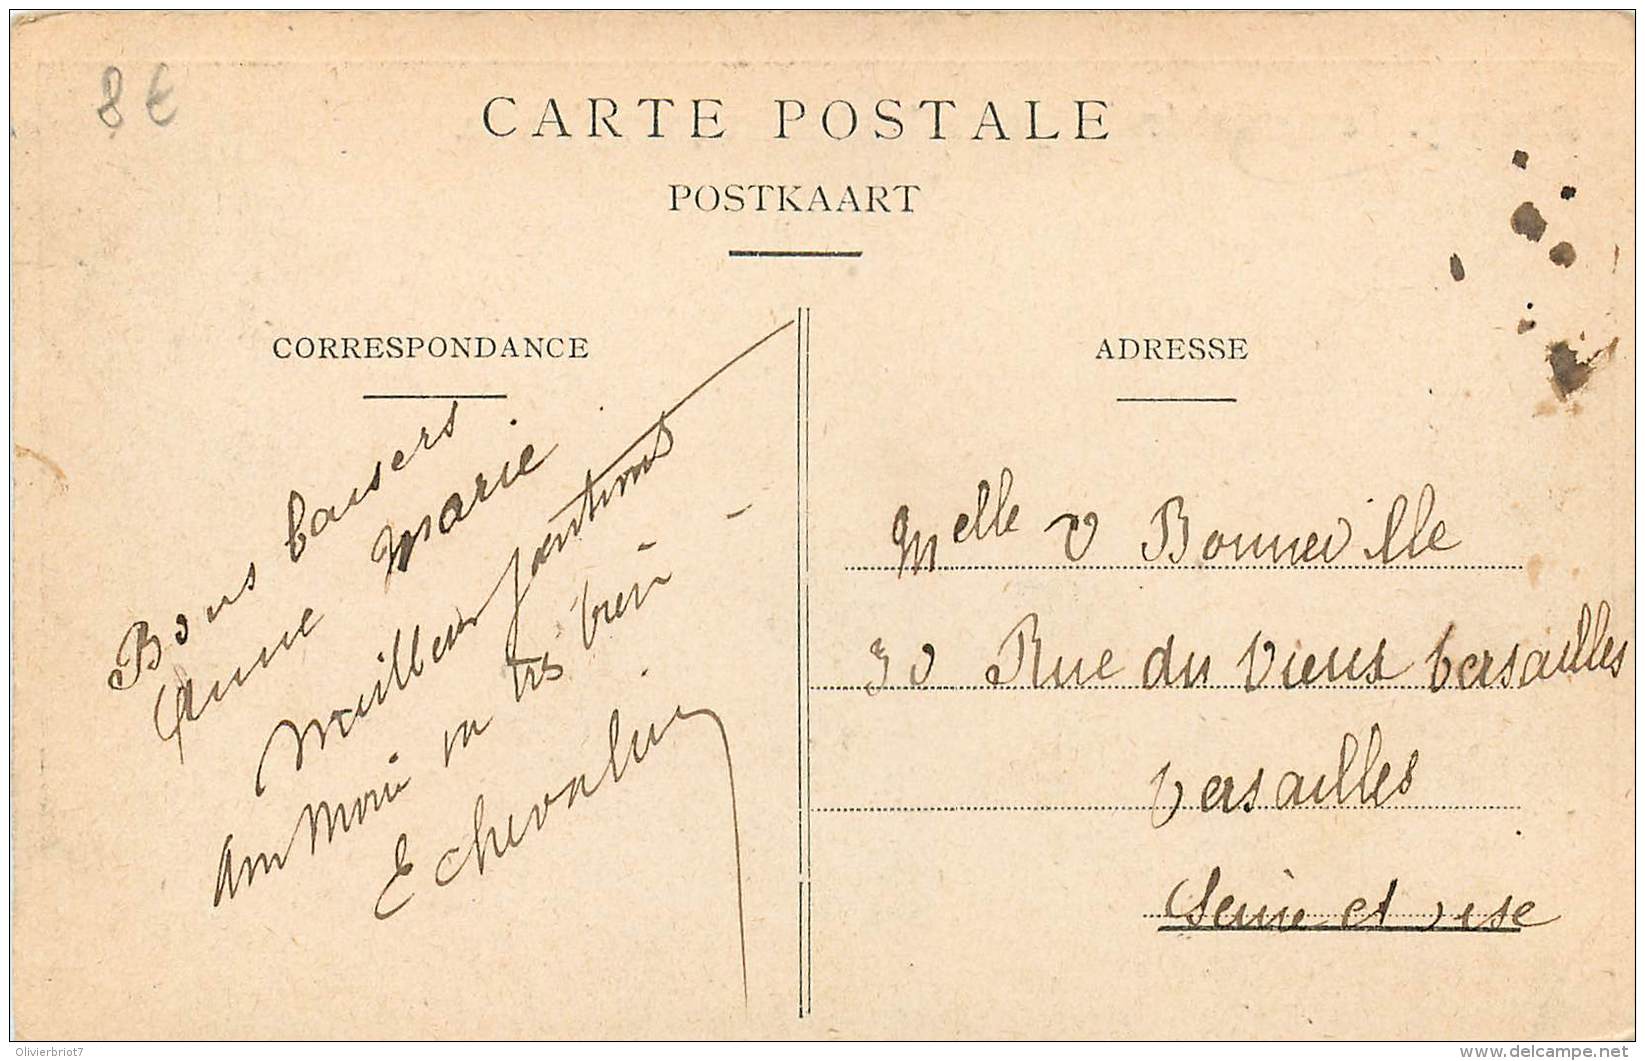 8 €
CARTE POSTALE
POSTKAART
CORRESPONDANCE
Bons baisers
Anne Marie
Meilleurs sentiments
Ann Marie va très bien
E Chevalier
ADRESSE
Melle V Bonneville
30 Rue du Vieux Versailles
Versailles
Seine et Oise
Olivierbriot7
delcampe.net